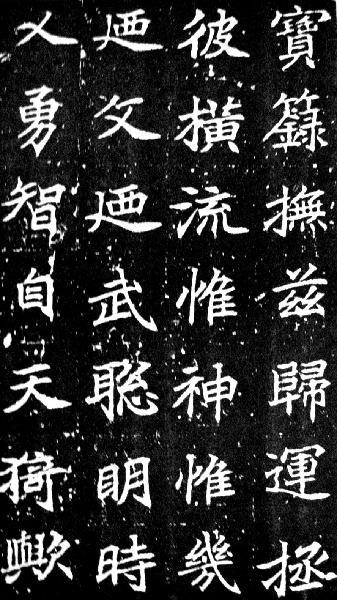 寶籙撫茲歸運拯
彼橫流惟神惟幾
廼文廼武聰明時
乂勇智自天猗歟